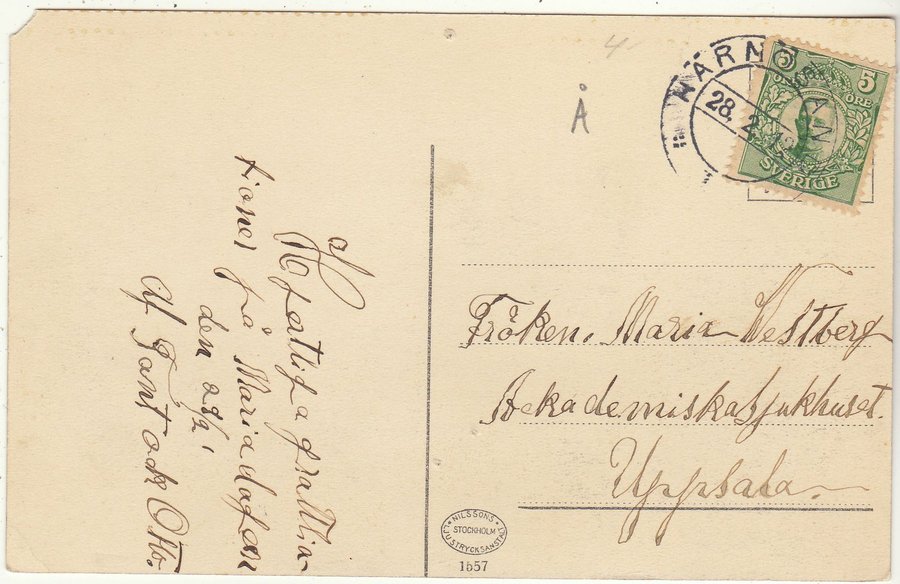 4-
Å
HÄRNÖSAN
28. 2.
5 5
ÖRE ÖRE
SVERIGE
Hjärtliga grattula
tioner på Mariadagen
den 28/2
af Tant ock Otto.
Fröken. Maria Westberg
Ackademiskasjukhuset.
Uppsala.
NILSSONS
STOCKHOLM
LJUSTRYCKSANSTALT
1557